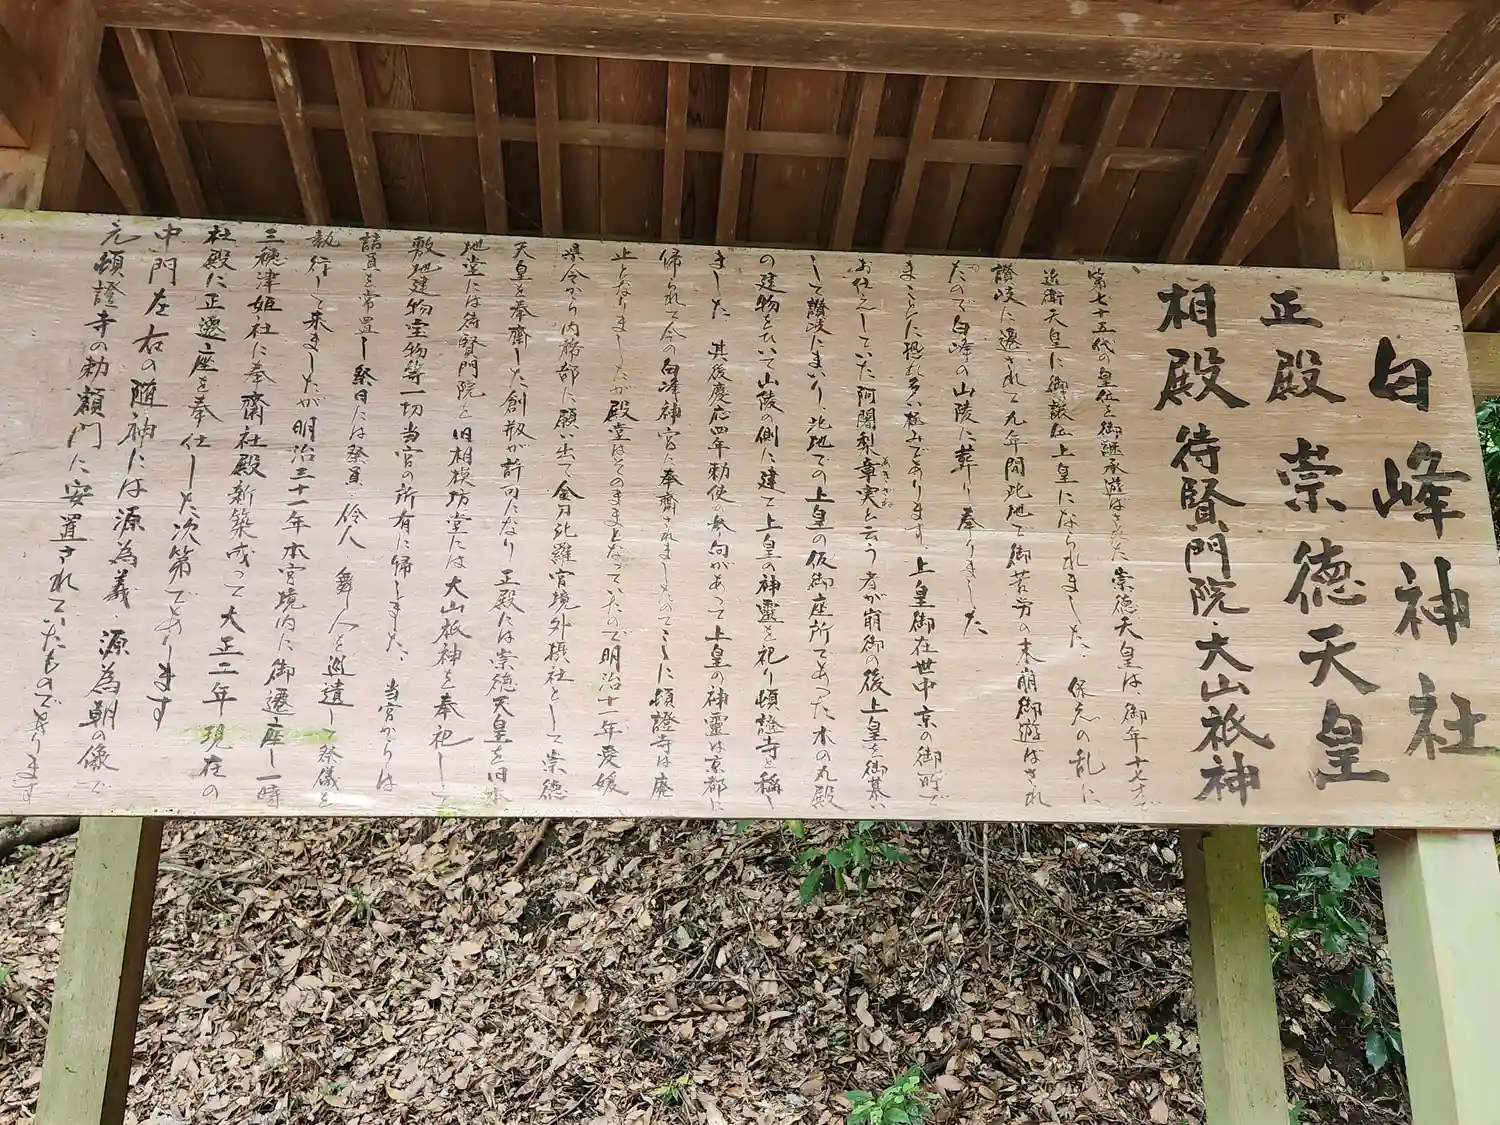 白峰神社
正殿 崇徳天皇
相殿 待賢門院・大山祇神
第七十五代の皇位を御継承遊ばされた崇徳天皇は、御年十七才で
近衛天皇に御譲位上皇になられました、保元の乱に
讃岐に遷されて九年間此地で御苦労の末崩御遊ばされ
たので白峰の山陵に葬り奉りました
まことに恐れ多い極みであります、上皇御在世中京の御所で
お仕えしていた阿闍梨章実と云う者が崩御の後上皇を御慕い
して讃岐にまいり、此地での上皇の仮御座所であった木の丸殿
の建物をひいて山陵の側に建て上皇の神霊を祀り頓證寺と稱し
ました 其後慶応四年勅使の参向があって上皇の神霊は京都に
帰られて今の白峰神宮に奉齋されましたのでここに頓證寺は廃
止となりましたが殿堂はそのままとなっていたので明治十一年愛媛
県令から内務部に願い出て金刀比羅宮境外摂社として崇徳
天皇を奉齋した創祀が許可になり 正殿には崇徳天皇を旧
地堂には待賢門院を旧相模坊堂には大山祇神を奉祀して
敷地建物宝物等一切当宮の所有に帰しました、当宮からは
詰員を常置し 祭日には祭員 伶人 舞人を 遣して祭儀を
執行して来ましたが明治三十一年本宮境内に御遷座し一時
三穂津姫社に奉齋社殿新築成って大正二年現在の
社殿に正遷座を奉仕した次第であります
中門左右の随神には源為義・源為朝の像で
元頓證寺の勅額門に安置されていたものであります